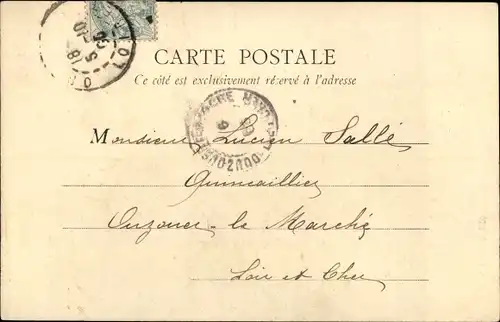 CARTE POSTALE
Ce côté est exclusivement réservé à l'adresse
Monsieur Lucien Sallé
Quincaillier
Ouzouer-le Marché
Loir et Cher